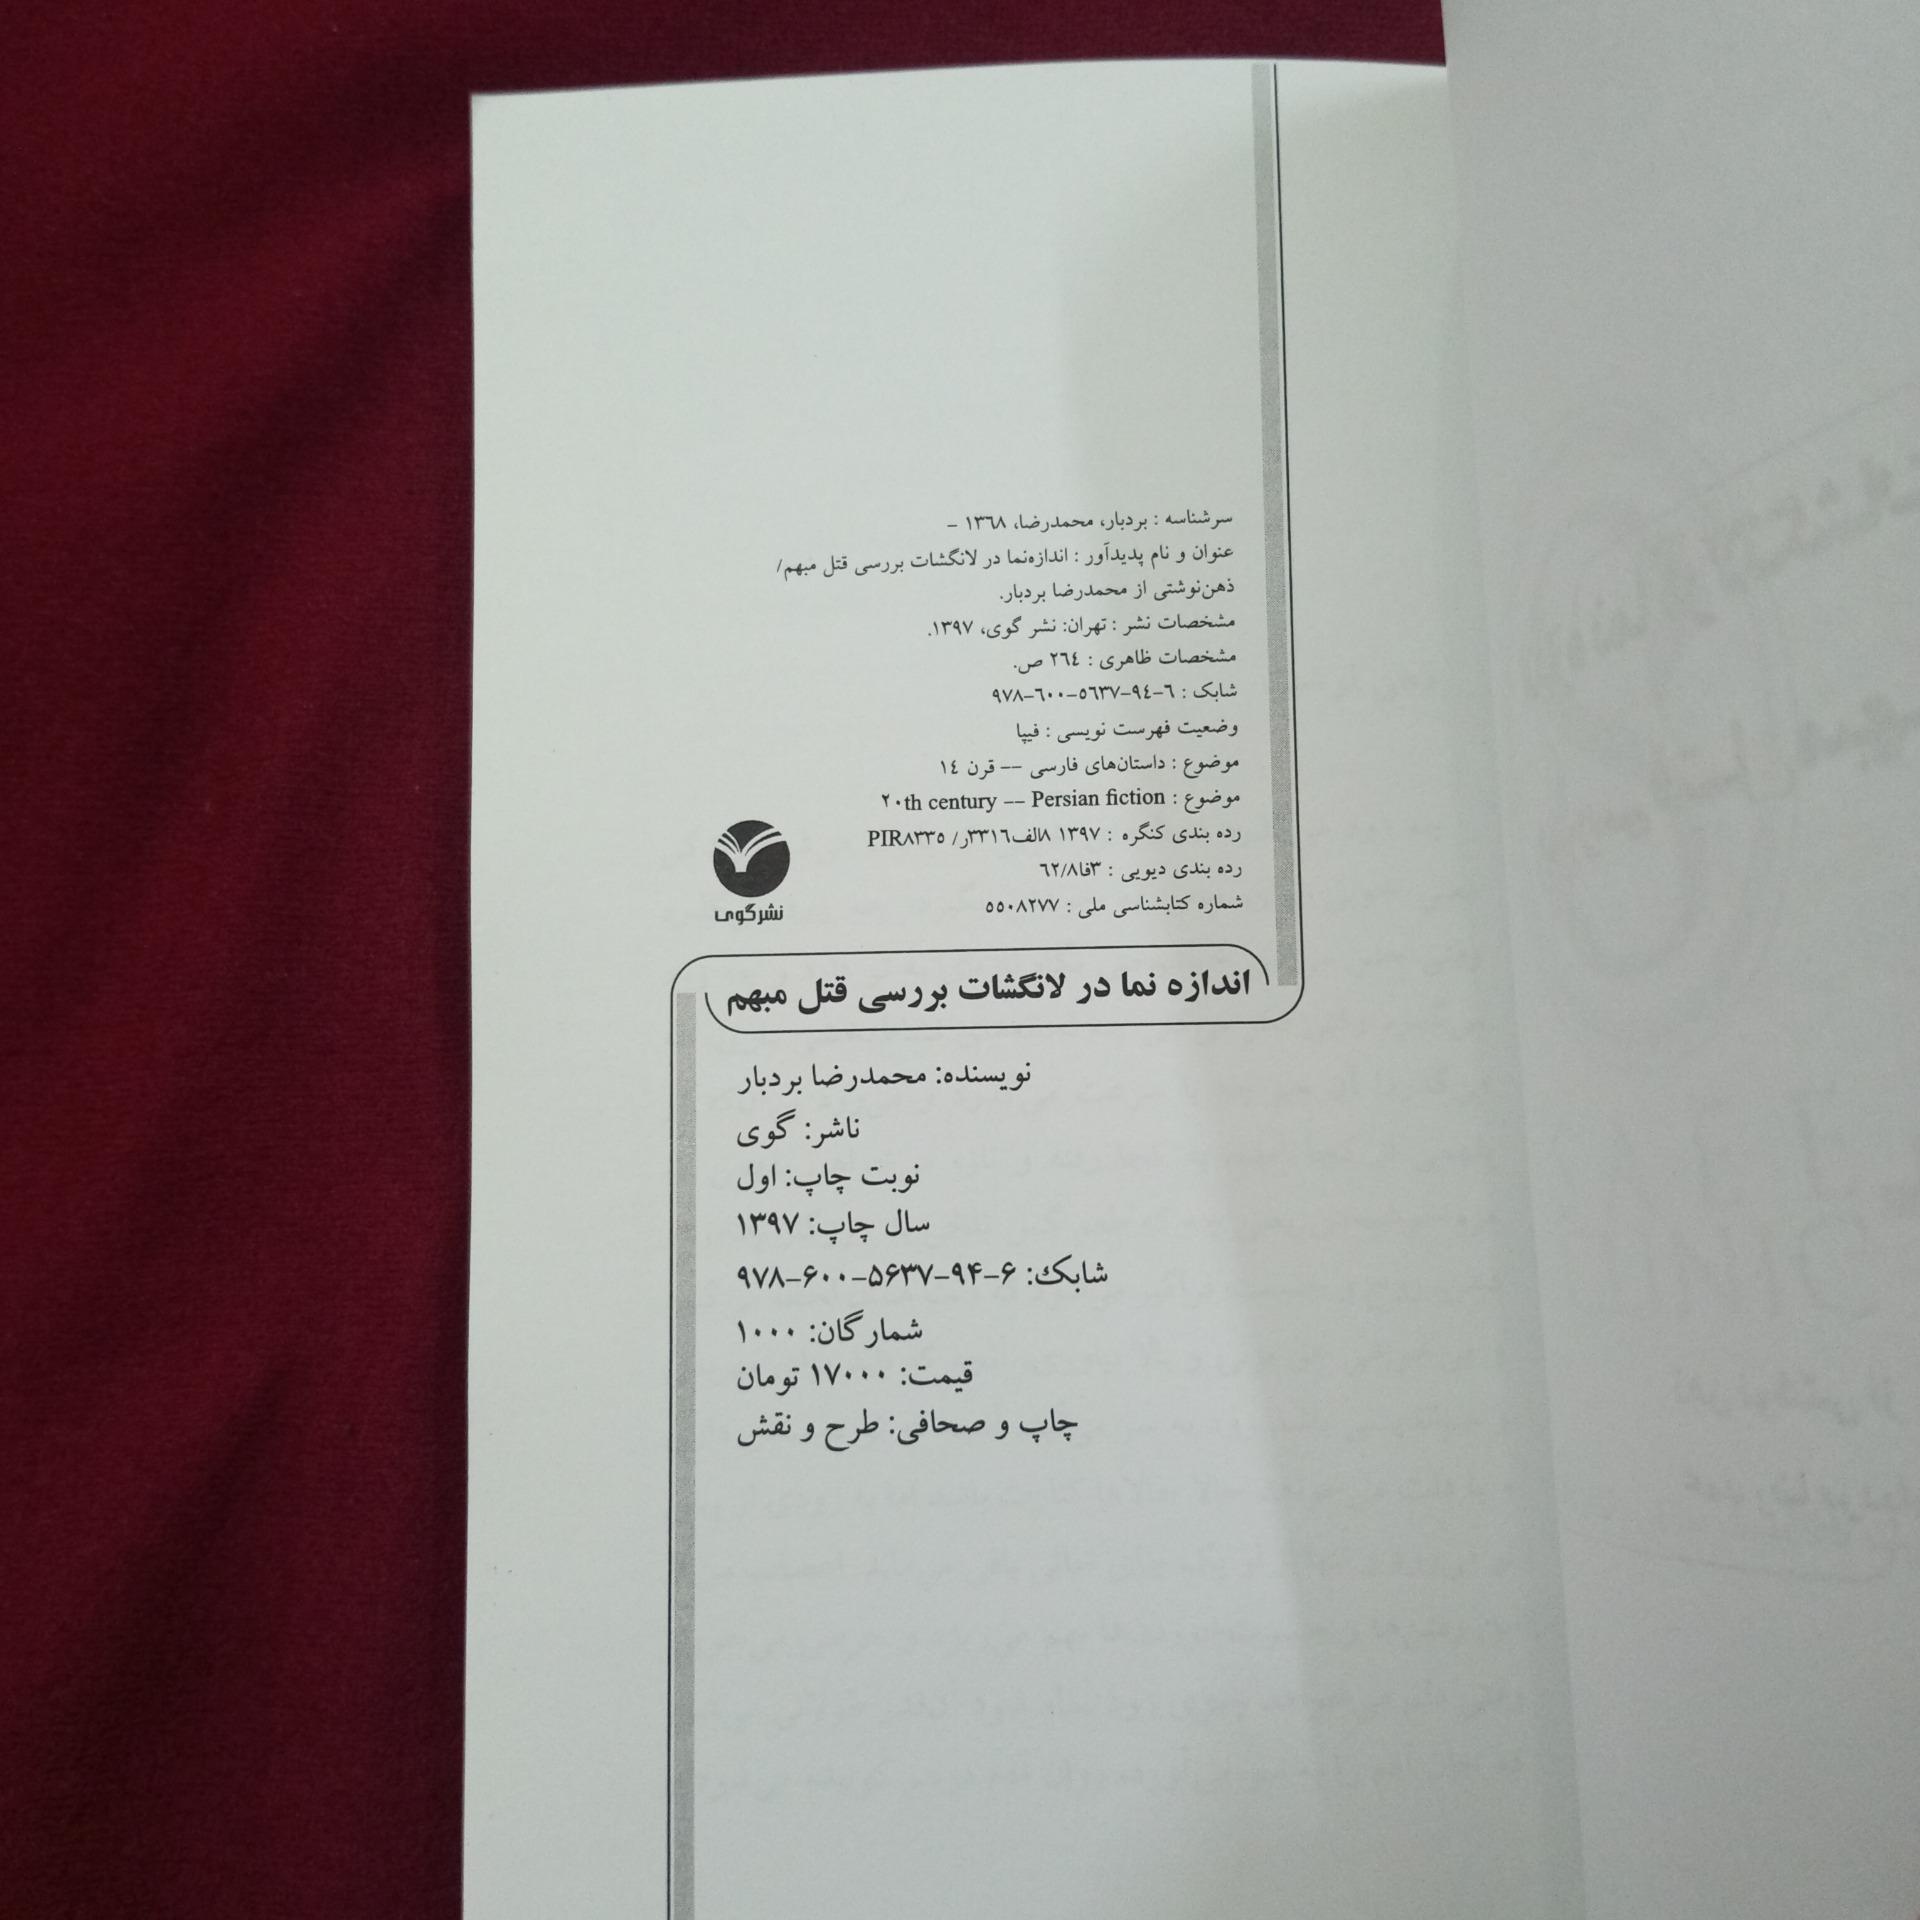 سرشناسه : بردبار، محمدرضا، ۱۳۶۸ –
عنوان و نام پدیدآور : اندازه‌نما در لانگشات بررسی قتل مبهم/
ذهن‌نوشتی از محمدرضا بردبار.
مشخصات نشر : تهران: نشر گوی، ۱۳۹۷.
مشخصات ظاهری : ۲٦٤ ص.
شابک : ۹۷۸–٦۰۰–٥٦۳۷–۹٤–٦
وضعیت فهرست نویسی : فیپا
موضوع : داستان‌های فارسی –– قرن ۱٤
موضوع : ۲۰th century –– Persian fiction
رده بندی کنگره : ۱۳۹۷ ۸الف۳۳۱٦ر/ PIR۸۳۳٥
رده بندی دیویی : ۳فا٦۲/۸
شماره کتابشناسی ملی : ٥٥۰۸۲۷۷
نشرگوی
اندازه نما در لانگشات بررسی قتل مبهم
نویسنده: محمدرضا بردبار
ناشر: گوی
نوبت چاپ: اول
سال چاپ: ۱۳۹۷
شابک: ۹۷۸–۶۰۰–۵۶۳۷–۹۴–۶
شمارگان: ۱۰۰۰
قیمت: ۱۷۰۰۰ تومان
چاپ و صحافی: طرح و نقش